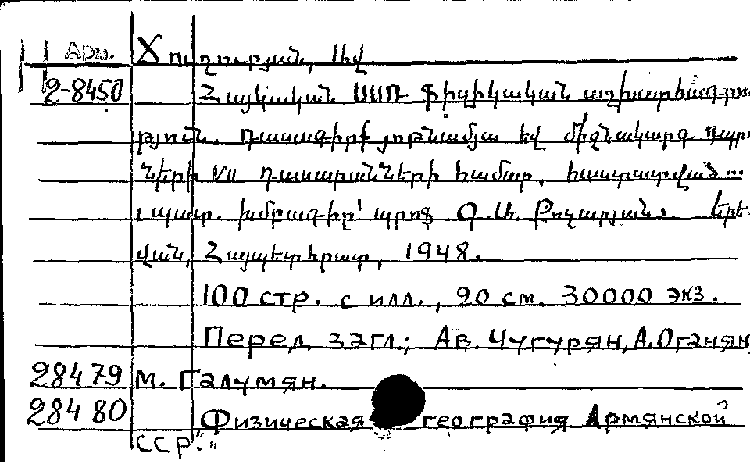 Арм. Խուդուրյան, Ավ
2-8450 Հայկական ՍՍՌ ֆիզիկական աշխարհագրու
թյուն. Դասագիրք յոթնամյա և միջնակարգ դպրոց
ների VII դասարանների համար. հաստատված...
պատ. խմբագիր՝ պրոֆ.
վան, Հայպետհրատ, 1948.
100 стр. с илл., 20 см. 30000 экз.
Перед загл.: Ав. Чугурян, А. Оганян
28479 М. Галумян.
28480 Физическая география Армянской
ССР.